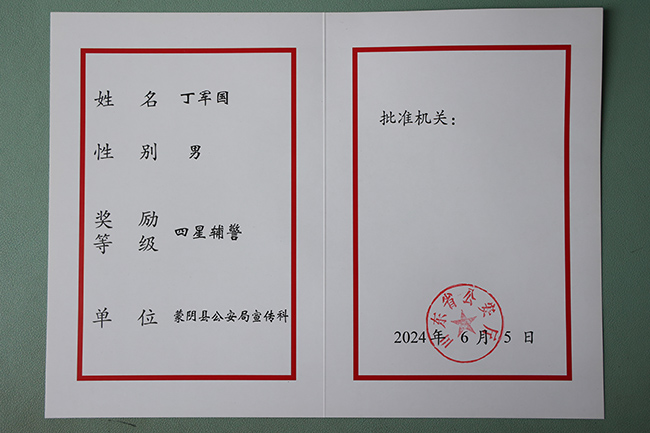 姓 名 丁军国
性 别 男
奖 励
等 级 四星辅警
单 位 蒙阴县公安局宣传科
批准机关：
山东省公安厅
2024年 6 月 5 日